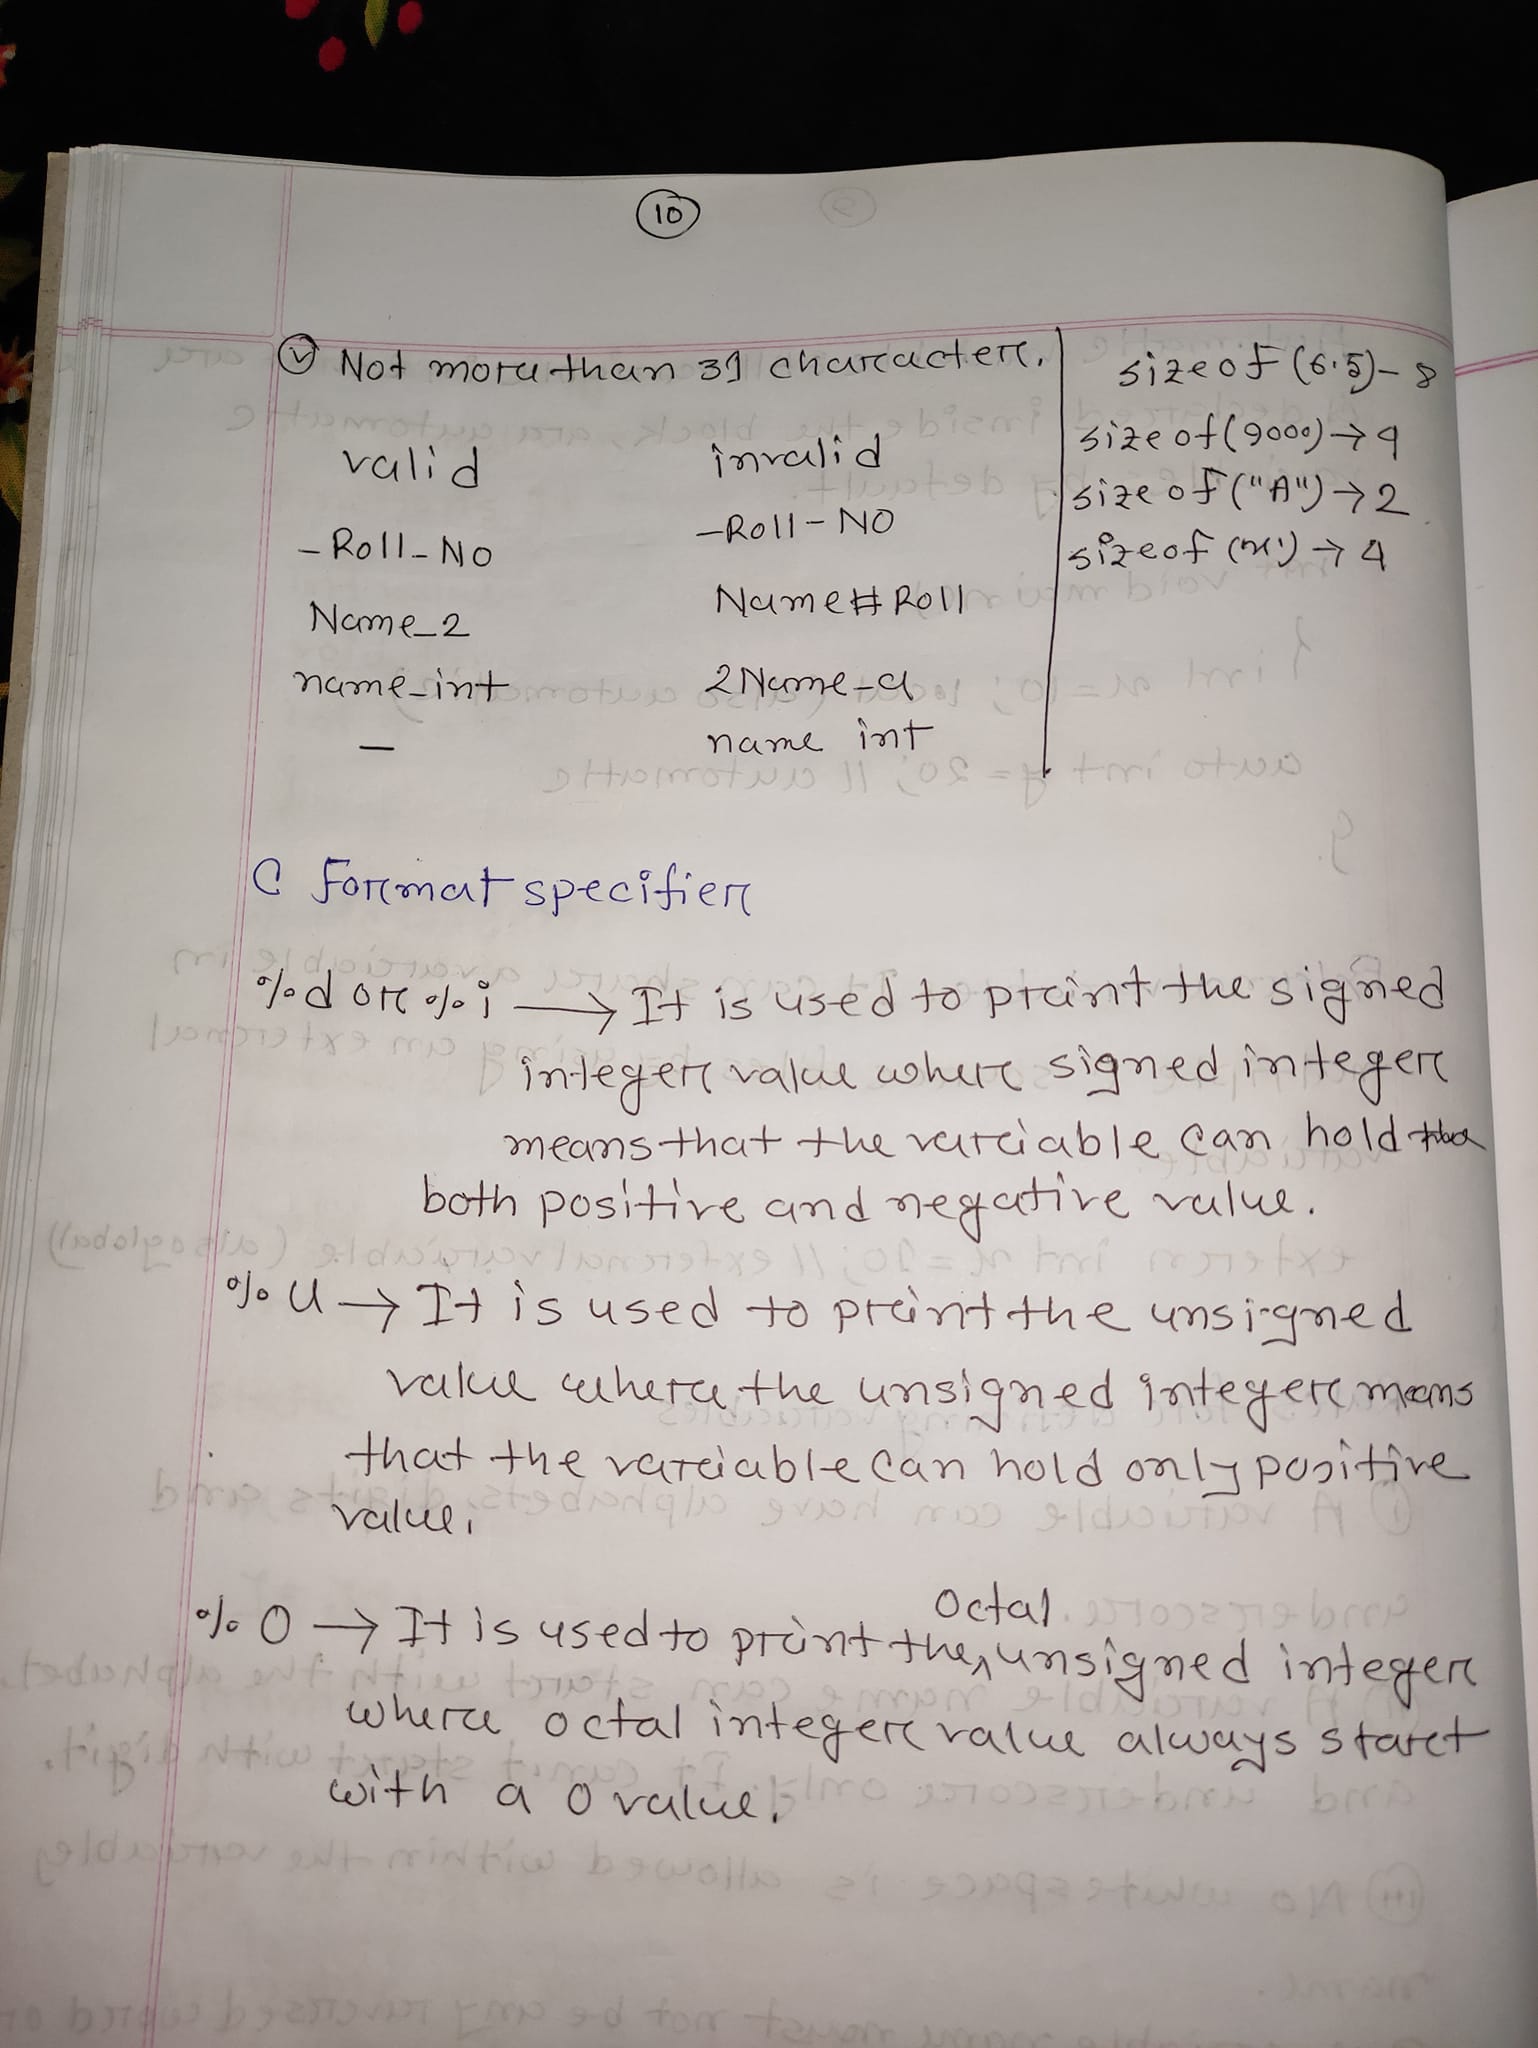 10
(v) Not more than 31 character.
valid invalid
_Roll_No -Roll-NO
Name_2 Name#Roll
name_int 2Name-a
_ name int
sizeof (6.5)- 8
sizeof(9000)→4
sizeof ("A")→2
sizeof ('x')→4
C Format specifier
%d or %i → It is used to print the signed
integer value where signed integer
means that the variable can hold
both positive and negative value.
%u → It is used to print the unsigned
value where the unsigned integer means
that the variable can hold only positive
value.
%O → It is used to print the Octal unsigned integer
where octal integer value always start
with a 0 value.